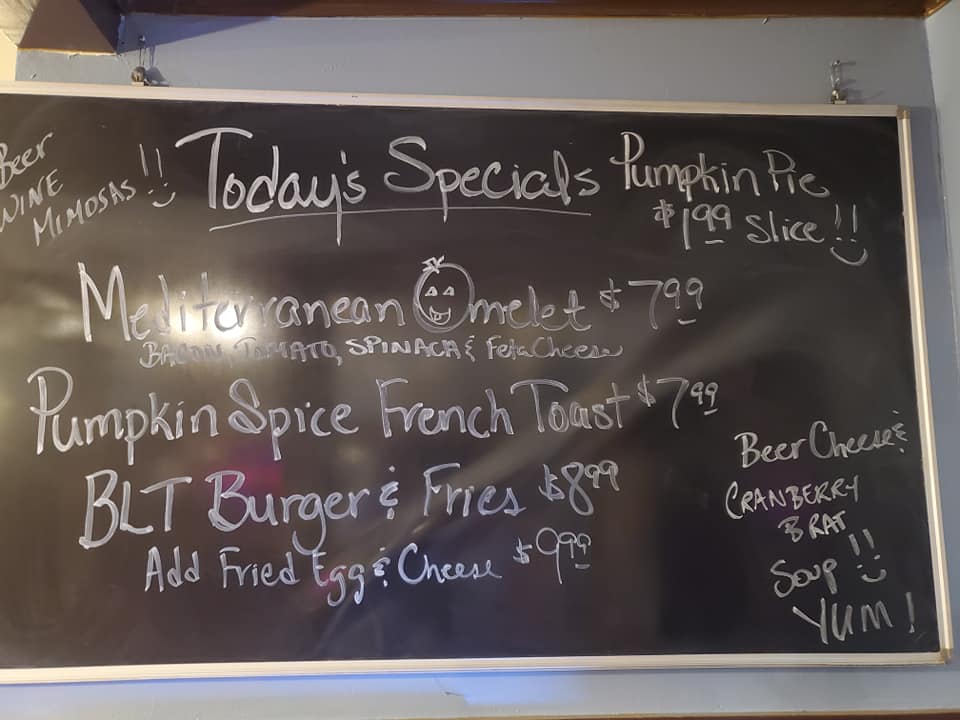 Beer
WINE
MIMOSAS !!
Today's Specials
Pumpkin Pie
$1.99 Slice!!
Mediterranean Omelet $7.99
BACON, TOMATO, SPINACH & Feta Cheese
Pumpkin Spice French Toast $7.99
BLT Burger & Fries $8.99
Add Fried Egg & Cheese $9.99
Beer Cheese &
CRANBERRY
BRAT
Soup!!
YUM!